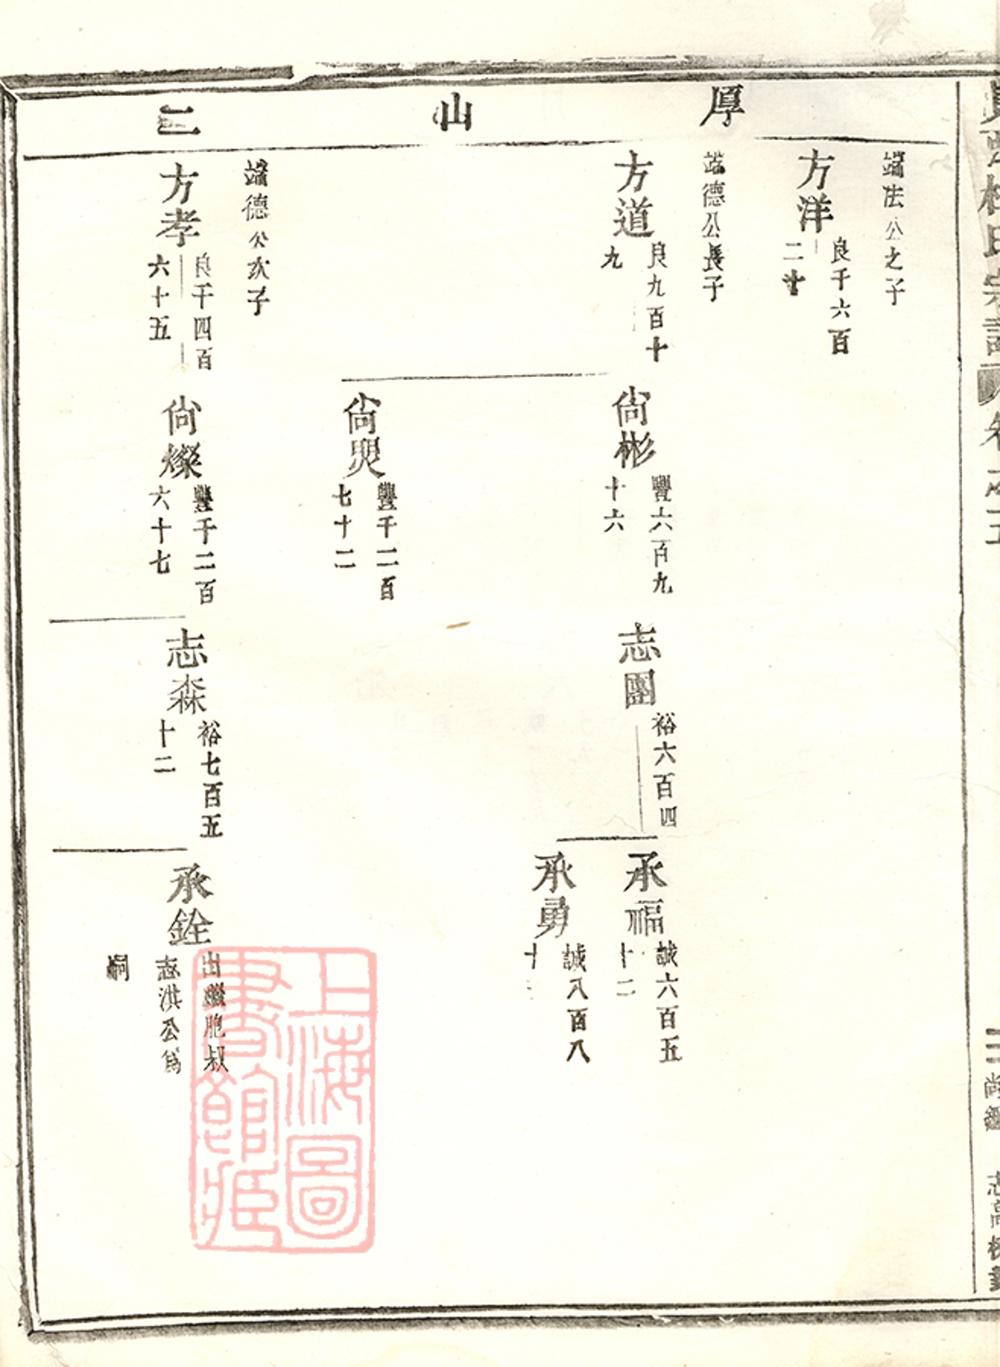 厚山二
端法公之子
方洋
良千六百
二十
端德公長子
方道
良九百十
九
尙彬
豐六百九
十六
志團
裕六百四
承福
誠六百五
十二
承勇
誠八百八
十
尙㷼
豐千二百
七十二
端德公次子
方孝
良千四百
六十五
尙燦
豐千二百
六十七
志森
裕七百五
十二
承銓
出繼胞叔
志洪公爲
嗣
上海圖
書館藏